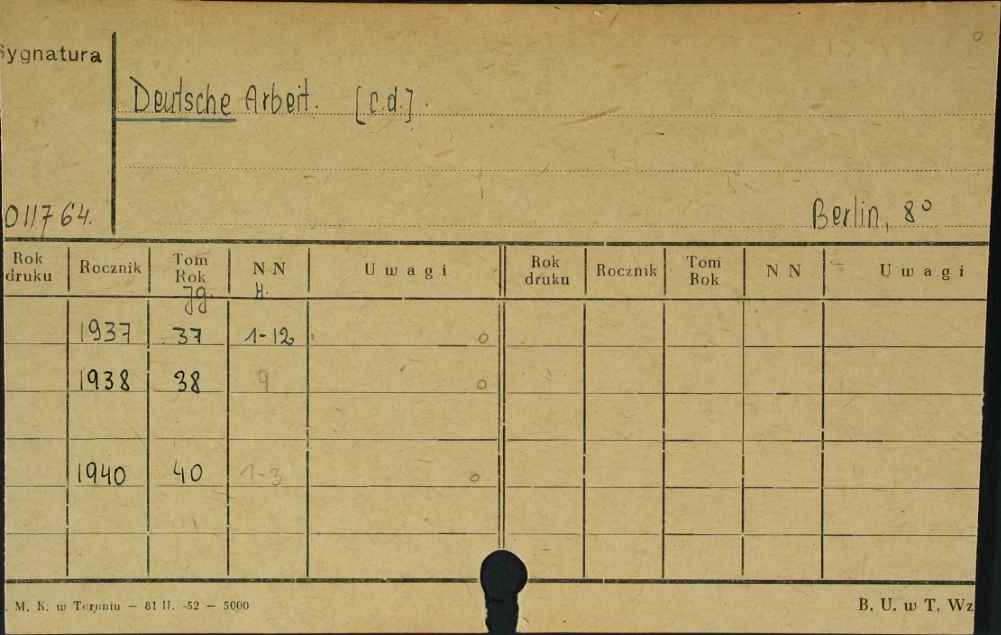 Sygnatura
Deutsche Arbeit. [c.d.].
011764.
Berlin, 8°
Rok druku Rocznik Tom Rok N N Uwagi Rok druku Rocznik Tom Rok N N Uwagi
Jg. H.
1937 37 1-12 o
1938 38 9 o
1940 40 1-3 o
. M. K. w Toruniu — 81 II. -52 — 5000
B. U. w T. Wz